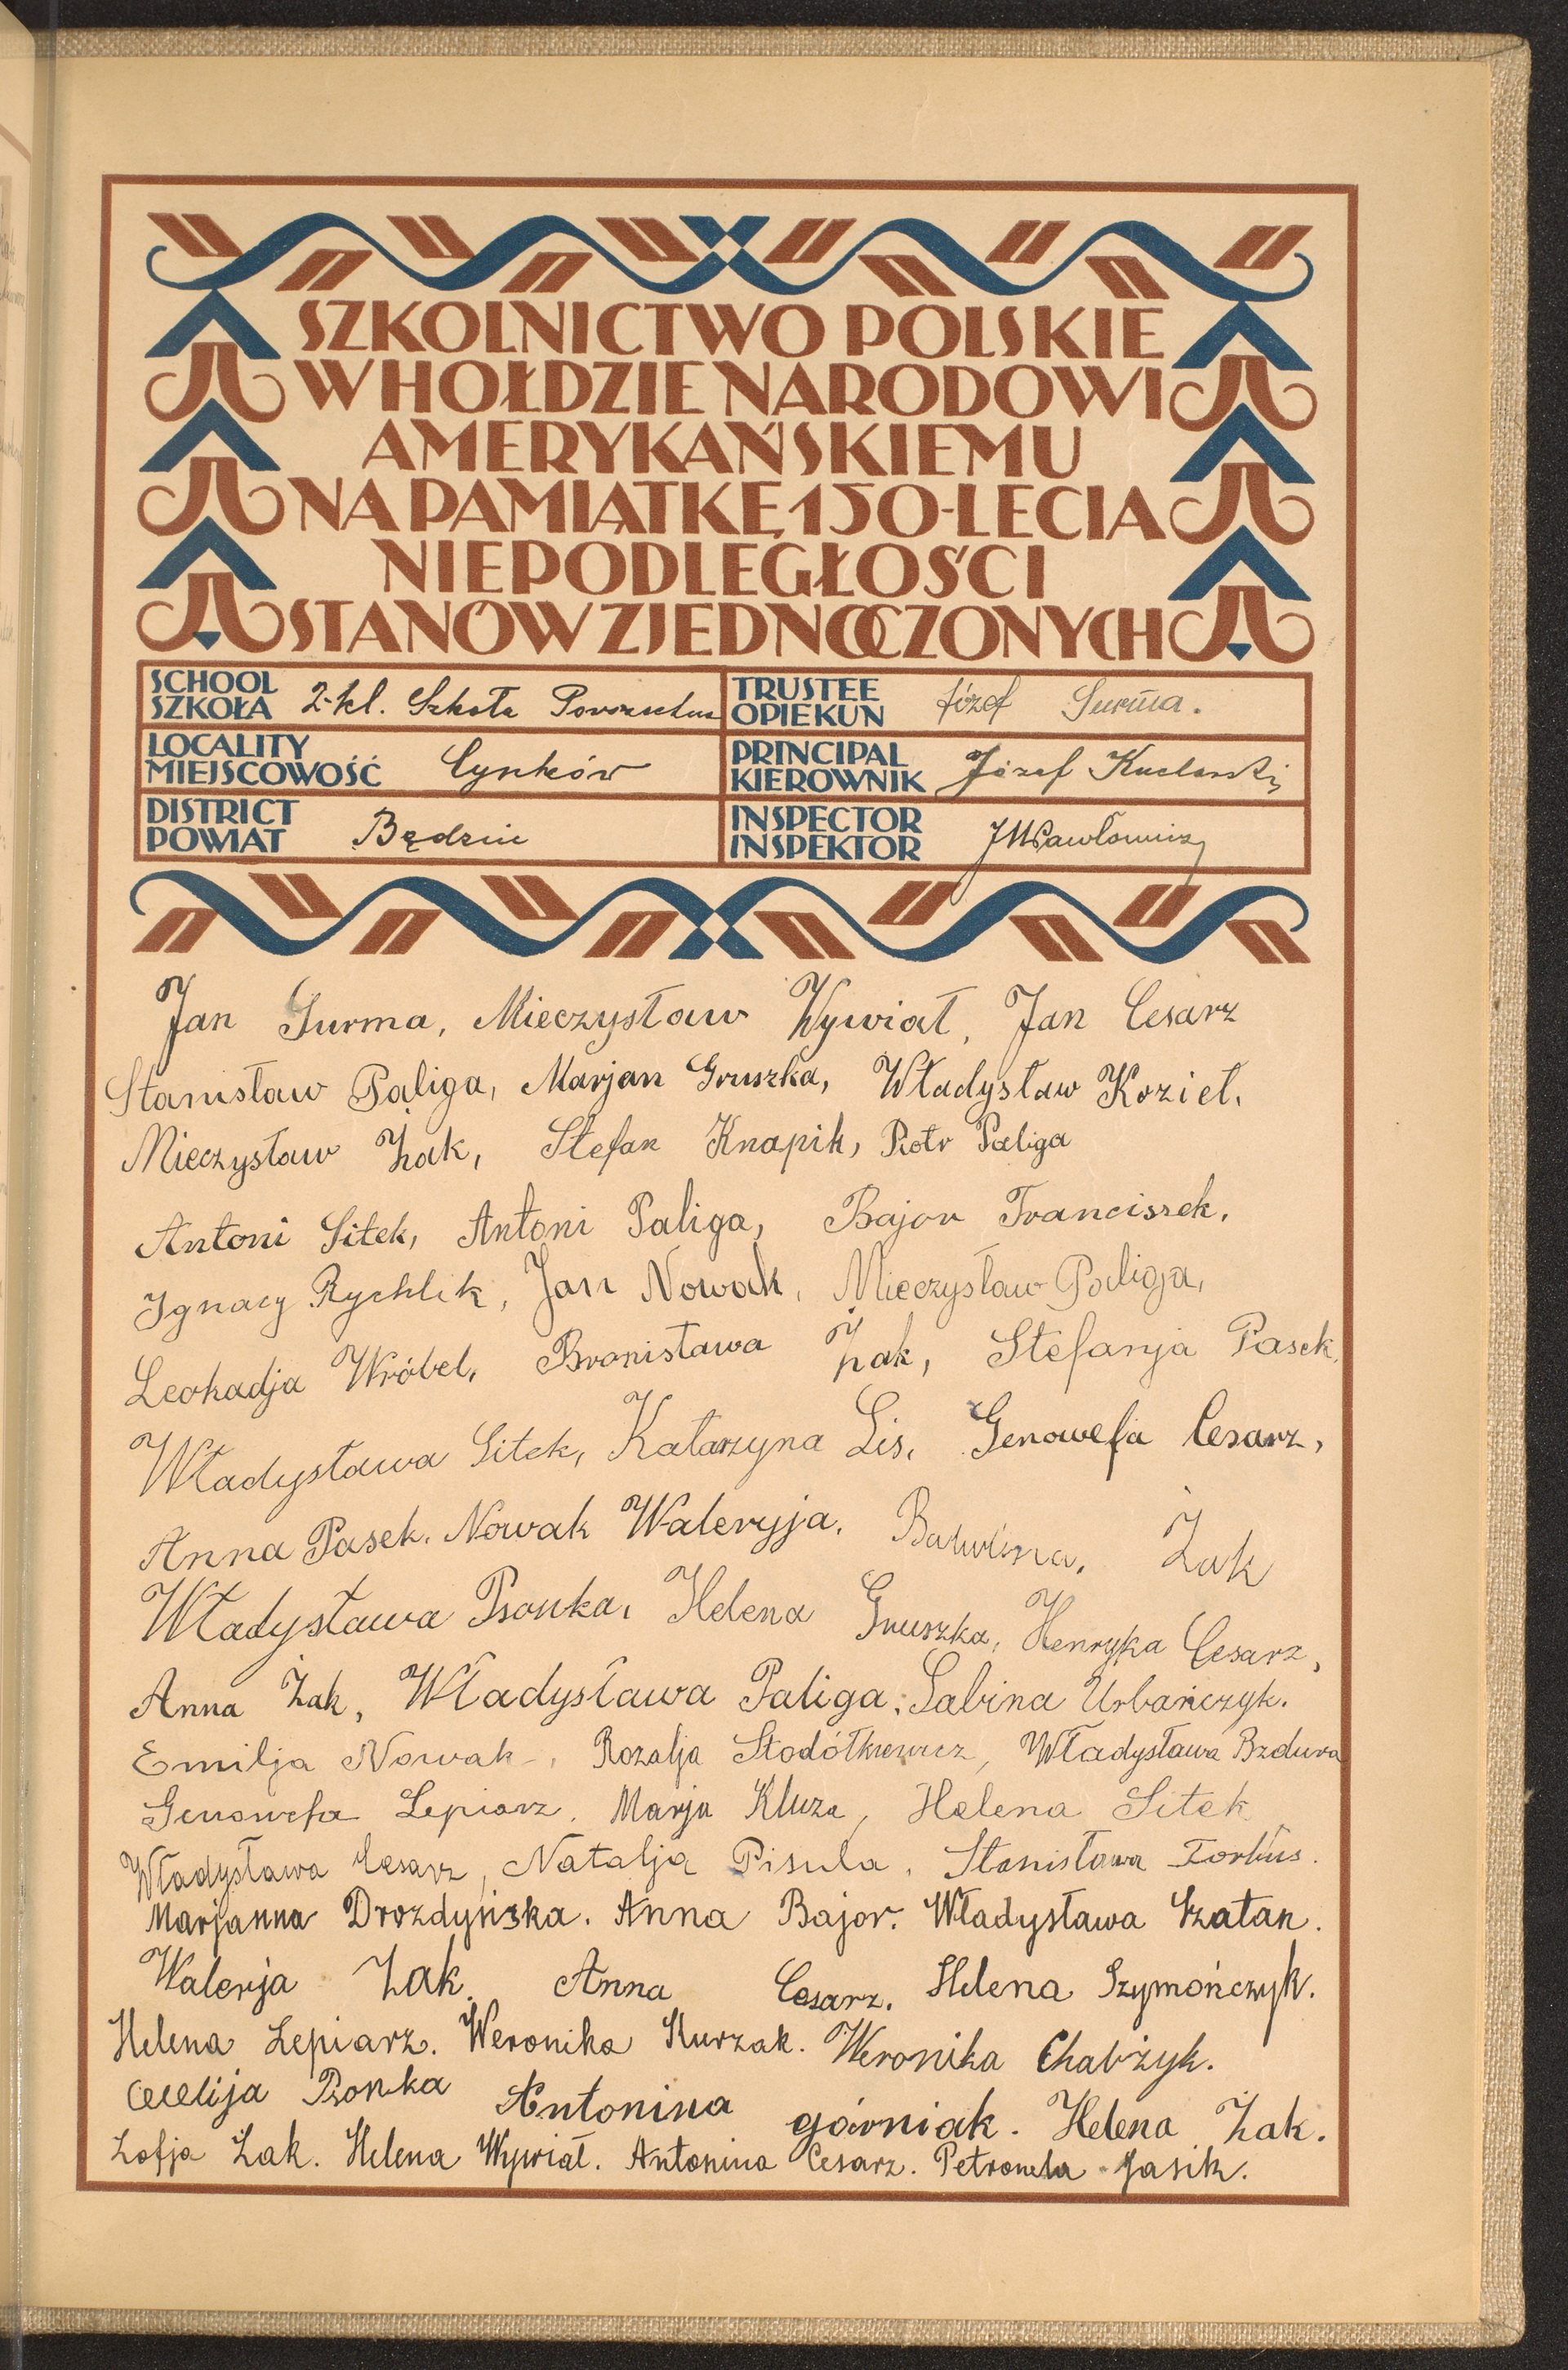 SZKOLNICTWO POLSKIE
W HOŁDZIE NARODOWI
AMERYKAŃSKIEMU
NA PAMIĄTKĘ 150-LECIA
NIEPODLEGŁOŚCI
STANÓW ZJEDNOCZONYCH
SCHOOL
SZKOŁA 2-kl. Szkoła Powszechna
TRUSTEE
OPIEKUN Józef Surma.
LOCALITY
MIEJSCOWOŚĆ Cynków
PRINCIPAL
KIEROWNIK Józef
DISTRICT
POWIAT Będzin
INSPECTOR
INSPEKTOR
Jan Surma, Mieczysław Wywiał, Jan Cesarz
Stanisław Paliga, Marjan Gruszka, Władysław Kozieł.
Mieczysław Żak, Stefan Knapik, Piotr Paliga
Antoni Sitek, Antoni Paliga, Bajor Franciszek,
Ignacy Rychlik, Jan Nowak, Mieczysław Paliga,
Leokadja Wróbel, Bronisława Żak, Stefanja Pasek,
Władysława Sitek, Katarzyna Lis, Genowefa Cesarz,
Anna Pasek. Nowak Waleryja. Balwina, Żak
Władysława Psonka, Helena Gruszka, Henryka Cesarz,
Anna Żak, Władysława Paliga, Sabina Urbańczyk.
Emilja Nowak, Rozalja Stodółkiewicz, Władysława Bzdura
Genowefa Lepiarz. Marja Kluza, Helena Sitek
Władysława Cesarz, Natalja Pisula, Stanisława Torbus.
Marjanna Drozdyńska. Anna Bajor. Władysława Szatan.
Walerja Żak. Anna Cesarz. Helena Szymończyk.
Helena Lepiarz. Weronika Kurzak. Weronika Chabżyk.
Cecelija Psonka Antonina górniak. Helena Żak.
Zofja Żak. Helena Wywiał. Antonina Cesarz. Petronela Jasik.